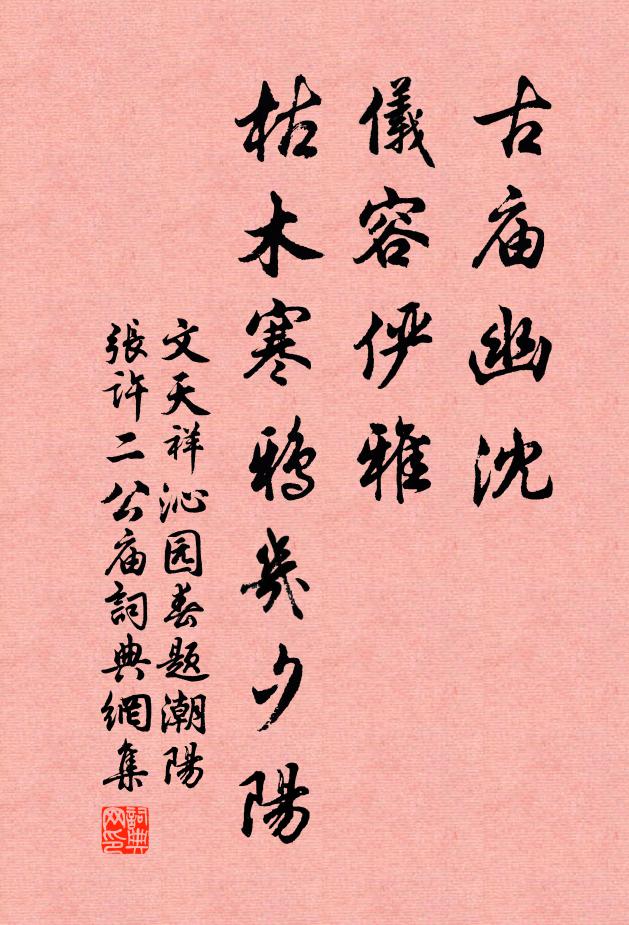 古庙幽沈
儀容俨雅
枯木寒鴉幾夕陽
文天祥沁园春题潮陽
張许二公庙詞典網集
詞典
网印